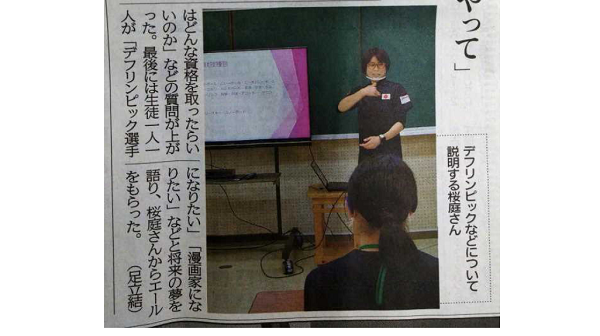 やって」
デフリンピックなどについて
説明する桜庭さん
はどんな資格を取ったらい
いのか」などの質問が上が
った。最後には生徒一人一
人が「デフリンピック選手
になりたい」「漫画家にな
りたい」などと将来の夢を
語り、桜庭さんからエール
をもらった。　（足立結）